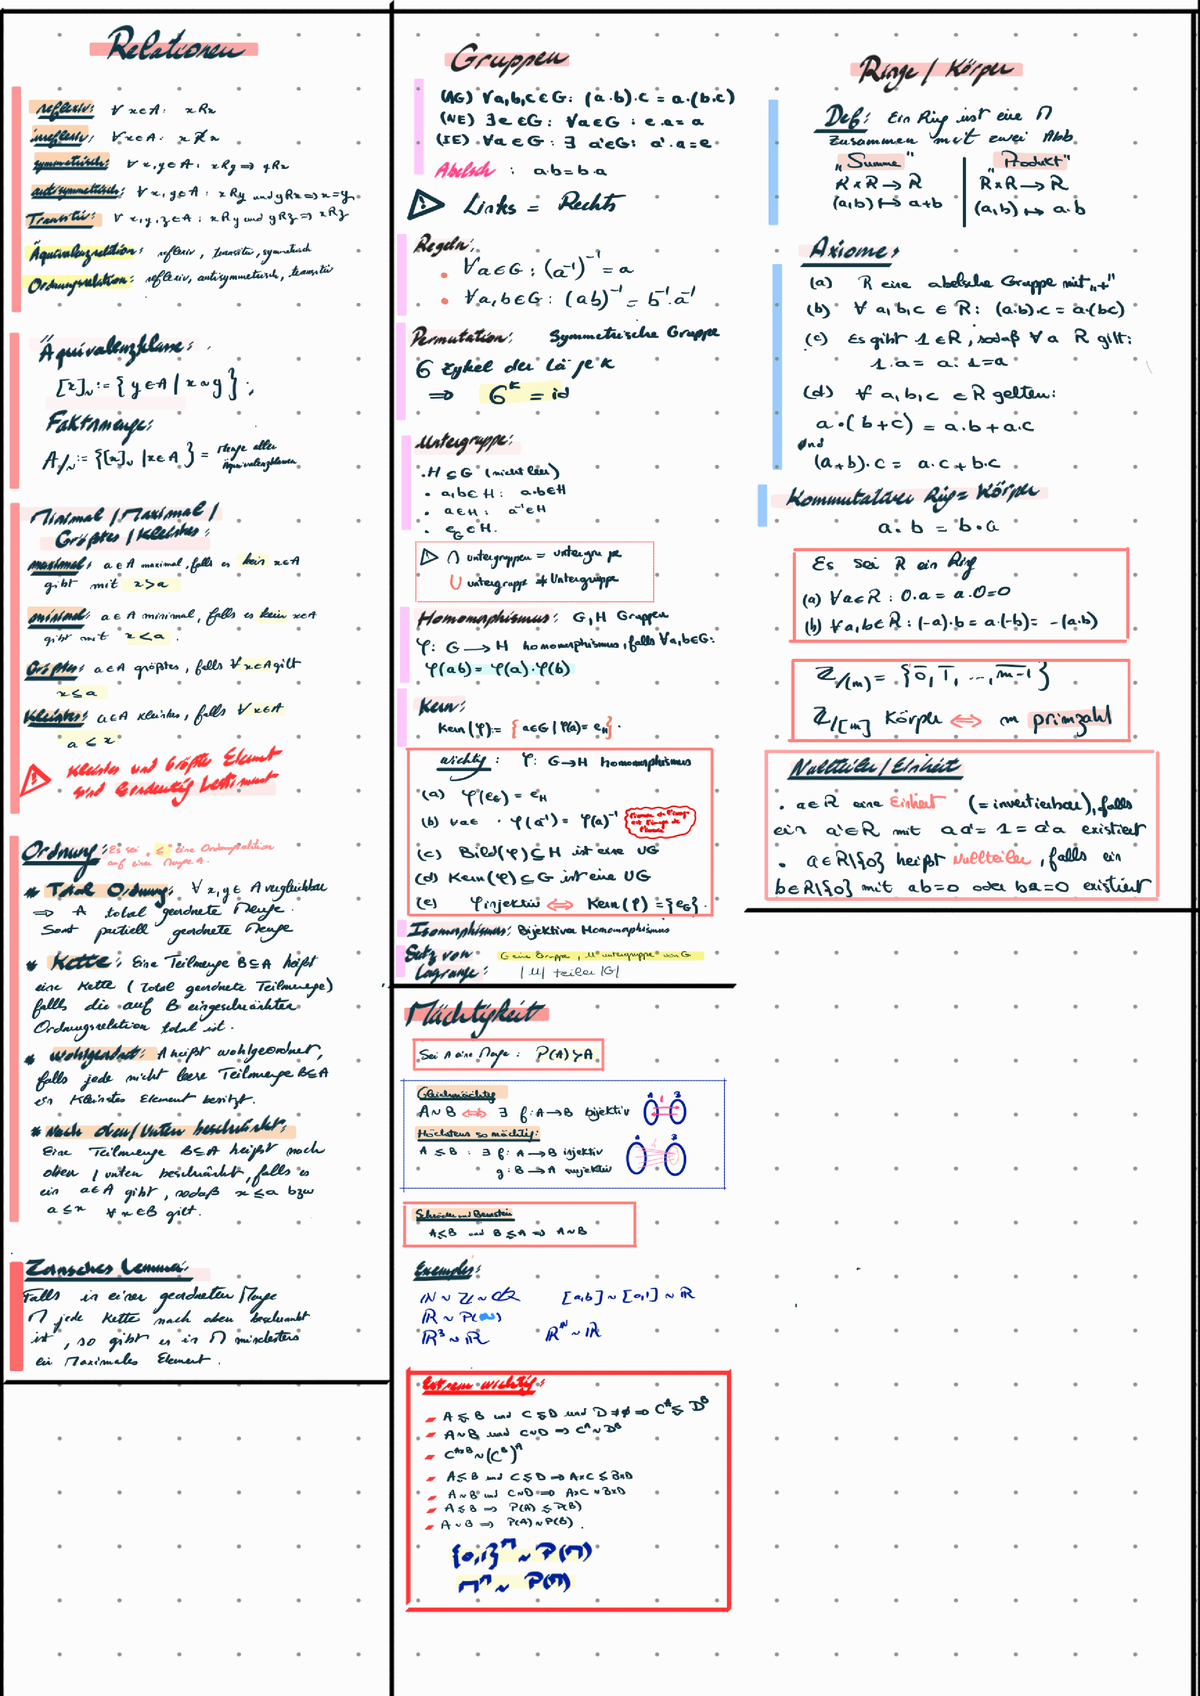 Relationen
reflexiv: ∀x∈A: xRx
irreflexiv: ∀x∈A: x R̸ x
symmetrisch: ∀x,y∈A: xRy ⇒ yRx
antisymmetrisch: ∀x,y∈A: xRy und yRx ⇒ x=y
Transitiv: ∀x,y,z∈A: xRy und yRz ⇒ xRz
Äquivalenzrelation: reflexiv, transitiv, symmetrisch
Ordnungsrelation: reflexiv, antisymmetrisch, transitiv
Äquivalenzklasse:
[x]~ := {y∈A | x~y};
Faktormenge:
A/~ := {[x]~ | x∈A} = Menge aller
Äquivalenzklassen
Minimal / Maximal /
Größtes / Kleinstes:
maximal: a∈A maximal, falls es kein x∈A
gibt mit x>a
minimal: a∈A minimal, falls es kein x∈A
gibt mit x<a.
Größtes: a∈A größtes, falls ∀x∈A gilt
x≤a
Kleinstes: a∈A kleinstes, falls ∀x∈A
a≤x
Kleinstes und Größtes Element
sind Eindeutig bestimmt
Ordnung: Es sei „≤" eine Ordnungsrelation
auf einer Menge A.
* Total Ordnung: ∀x,y∈A vergleichbar
⇒ A total geordnete Menge.
Sonst partiell geordnete Menge
* Kette: Eine Teilmenge B⊆A heißt
eine Kette (Total geordnete Teilmenge)
falls die auf B eingeschränkten
Ordnungsrelation total ist.
* Wohlgeordnet: A heißt wohlgeordnet,
falls jede nicht leere Teilmenge B⊆A
ein Kleinstes Element besitzt.
* Nach oben/Unten beschränkt:
Eine Teilmenge B⊆A heißt nach
oben / unten beschränkt, falls es
ein a∈A gibt, sodaß x≤a bzw
a≤x ∀x∈B gilt.
Zornsches Lemma:
Falls in einer geordneten Menge
M jede Kette nach oben beschränkt
ist, so gibt es in M mindestens
ein Maximales Element.
Gruppen
(AG) ∀a,b,c∈G: (a·b)·c = a·(b·c)
(NE) ∃e∈G: ∀a∈G: e·a=a
(IE) ∀a∈G: ∃ a'∈G: a'·a=e
Abelsch: a·b=b·a
Links = Rechts
Regeln:
• ∀a∈G: (a⁻¹)⁻¹ = a
• ∀a,b∈G: (ab)⁻¹ = b⁻¹·a⁻¹
Permutation: Symmetrische Gruppe
σ Zykel der Länge k
⇒ σᵏ = id
Untergruppe:
• H⊆G (nicht leer)
• a,b∈H: a·b∈H
• a∈H: a⁻¹∈H
• e_G∈H.
▷ ∩ untergruppen = untergruppe
∪ untergruppe ≠ Untergruppe
Homomorphismus: G,H Gruppen
φ: G→H homomorphismus, falls ∀a,b∈G:
φ(ab) = φ(a)·φ(b)
Kern:
Kern(φ) := {a∈G | φ(a)=e_H}.
wichtig: φ: G→H homomorphismus
(a) φ(e_G) = e_H
(b) ∀a∈ · φ(a⁻¹) = φ(a)⁻¹
(c) Bild(φ)⊆H ist eine UG
(d) Kern(φ)⊆G ist eine UG
(e) φ injektiv ⇔ Kern(φ) = {e_G}.
Isomorphismus: Bijektiver Homomorphismus
Satz von Lagrange: G eine Gruppe, U "untergruppe" von G
|U| teilen |G|
Mächtigkeit
Sei A eine Menge: P(A) ≻ A
Gleichmächtig
A~B ⇔ ∃ f: A→B bijektiv
Höchstens so mächtig:
A≤B: ∃ f: A→B injektiv
g: B→A surjektiv
Schröder und Bernstein
A≤B und B≤A ⇒ A~B
Exemples:
ℕ ~ ℤ ~ ℚ [a,b] ~ [0,1] ~ ℝ
ℝ ~ P(ℕ)
ℝ³ ~ ℝ ℝᴺ ~ ℝ
Extrem wichtig:
- A≤B und C≤D und D≠∅ ⇒ Cᴬ ≤ Dᴮ
- A~B und C~D ⇒ Cᴬ ~ Dᴮ
- Cᴬˣᴮ ~ (Cᴮ)ᴬ
- A≤B und C≤D ⇒ A×C ≤ B×D
- A~B und C~D ⇒ A×C ~ B×D
- A≤B ⇒ P(A) ≤ P(B)
- A~B ⇒ P(A) ~ P(B).
{0,1}ᴹ ~ P(M)
Mᴹ ~ P(M)
Ringe / Körper
Def: Ein Ring ist eine M
zusammen mit zwei Abb.
„Summe" „Produkt"
R×R→R R×R→R
(a,b) ↦ a+b (a,b) ↦ a·b
Axiome:
(a) R eine abelsche Gruppe mit „+"
(b) ∀ a,b,c ∈ R: (a·b)·c = a·(bc)
(c) Es gibt 1∈R, sodaß ∀ a R gilt:
1·a = a·1 = a
(d) ∀ a,b,c ∈R gelten:
a·(b+c) = a·b+a·c
und
(a+b)·c = a·c+b·c
Kommutativer Ring = Körper
a·b = b·a
Es sei R ein Ring
(a) ∀a∈R: 0·a = a·0 = 0
(b) ∀a,b∈R: (-a)·b = a·(-b) = -(a·b)
ℤ/(m) = {0̅, 1̅, ..., m-1̅}
ℤ/[m] Körper ⇔ m primzahl
Nullteiler/Einheit
• a∈R eine Einheit (= invertierbar), falls
ein a'∈R mit aa' = 1 = a'a existiert
• a∈R\{0} heißt Nullteiler, falls ein
b∈R\{0} mit ab=0 oder ba=0 existiert